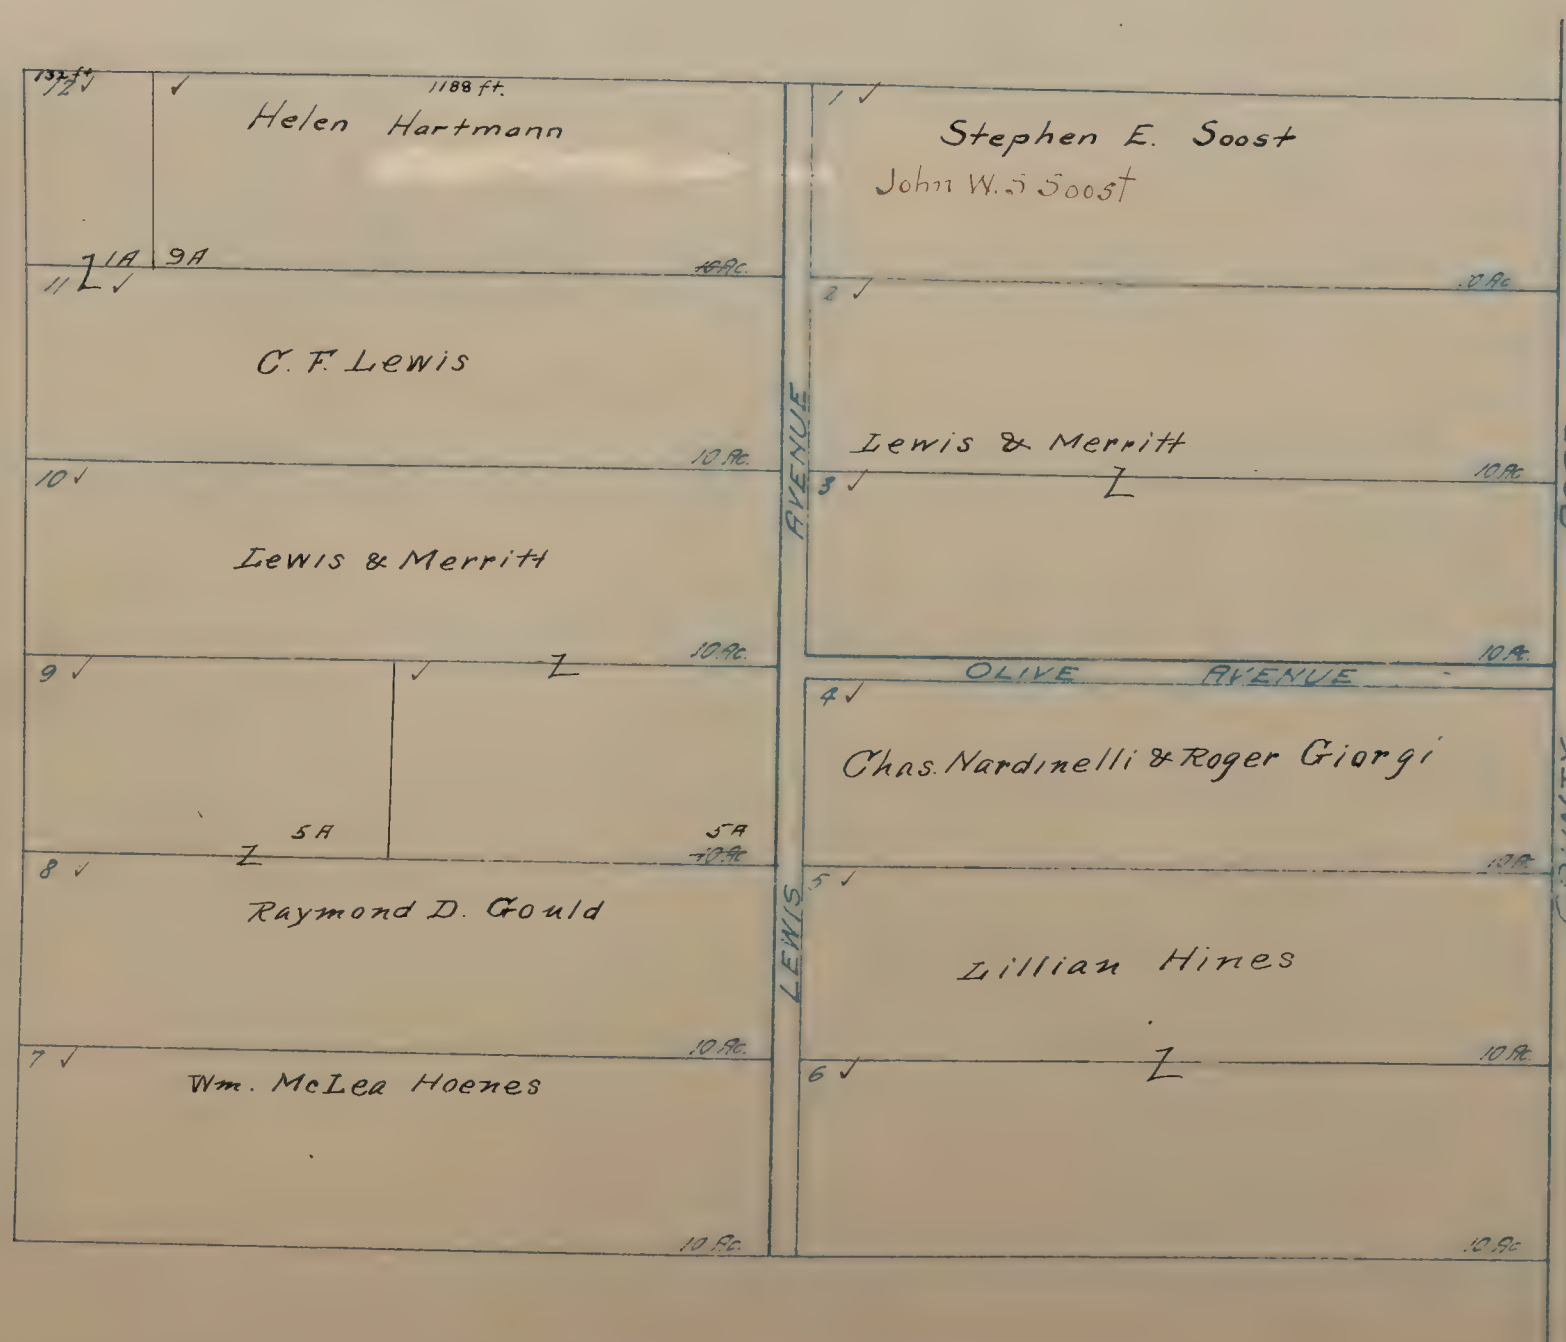 132 ft.
12 ✓
✓
1188 ft.
Helen Hartmann
1A
9A
10 Ac.
11 ✓
C. F. Lewis
10 Ac.
10 ✓
Lewis & Merritt
10 Ac.
9 ✓
✓
5A
5A
10 Ac
8 ✓
Raymond D. Gould
10 Ac.
7 ✓
Wm. McLea Hoenes
10 Ac.
LEWIS AVENUE
1 ✓
Stephen E. Soost
John W. S Soost
10 Ac
2 ✓
Lewis & Merritt
10 Ac
3 ✓
10 Ac.
OLIVE AVENUE
4 ✓
Chas. Nardinelli & Roger Giorgi
10 Ac
5 ✓
Lillian Hines
10 Ac
6 ✓
10 Ac
COUNTY